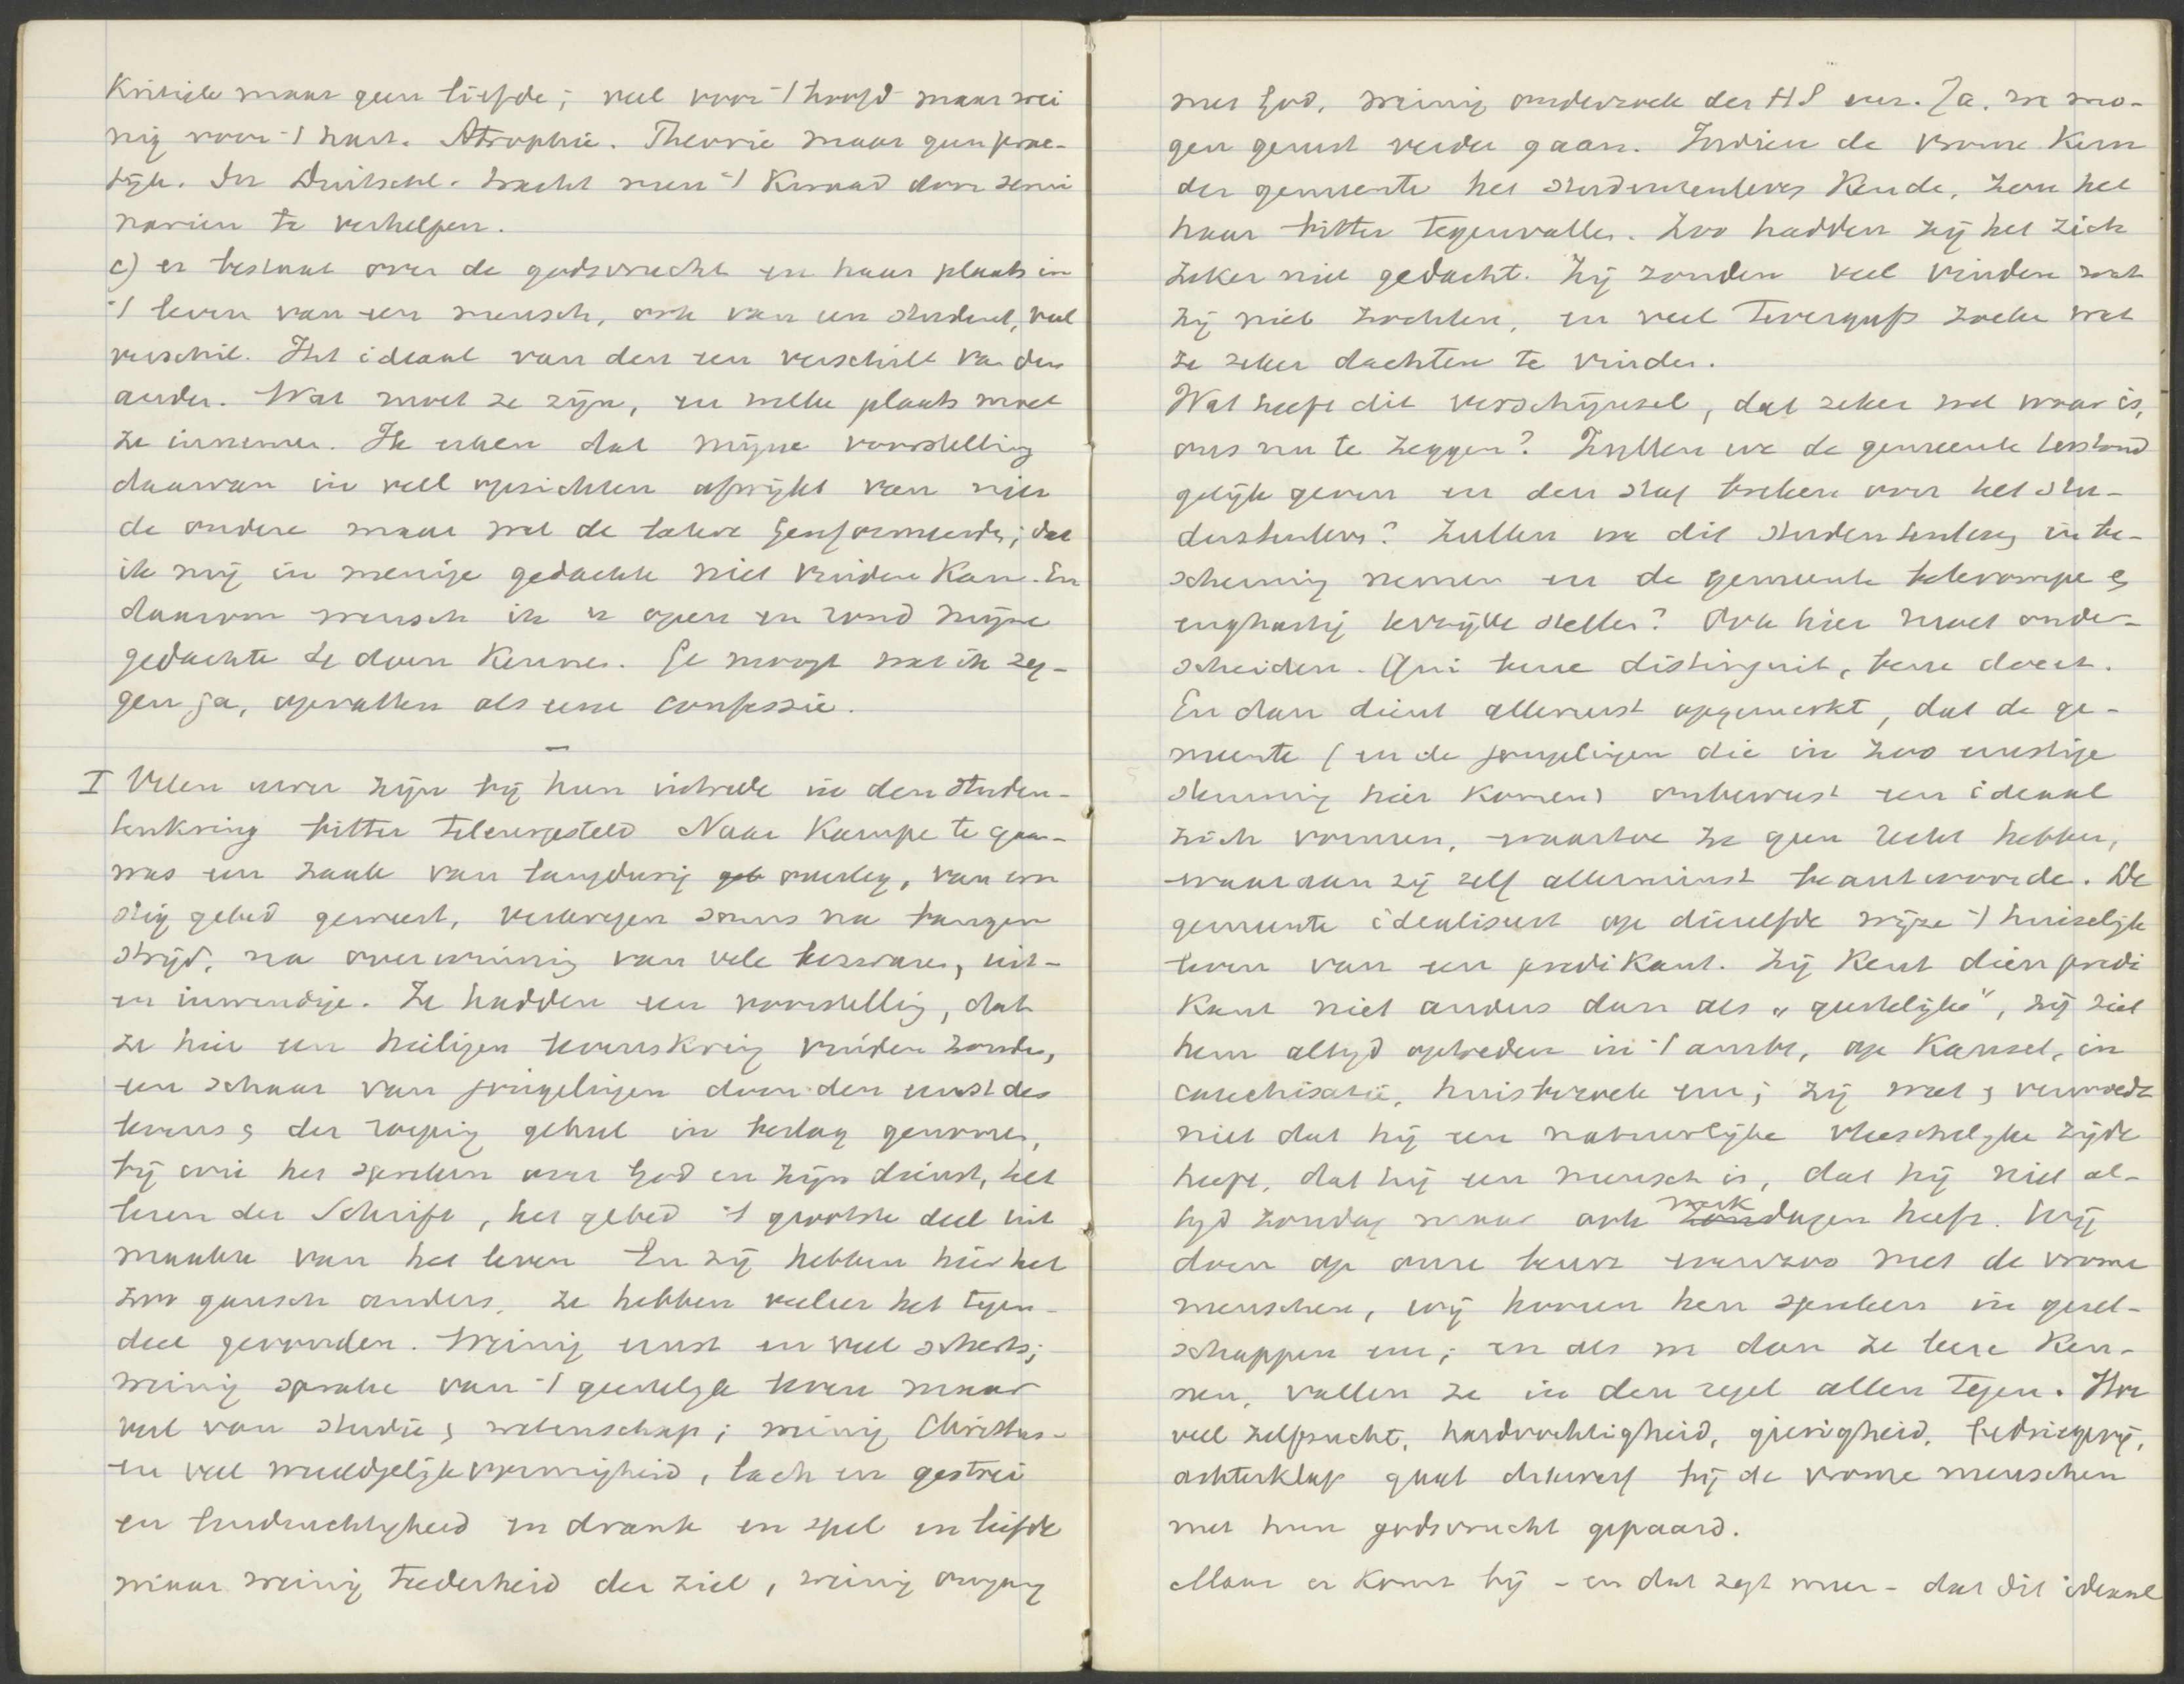 Kritiek maar geen liefde; veel voor 't hoofd maar wei
nig voor 't hart. Atrophie. Theorie maar geen prac-
tijk. In Duitschl. tracht men 't kwaad door semi
narien te verhelpen.
c) er bestaat over de godsvrucht en haar plaats in
't leven van een mensch, ook van een student, veel
verschil. Het ideaal van den een verschilt van den
ander. Wat moet ze zijn, en welke plaats moet
ze innemen. Ik erken dat mijne voorstelling
daarvan in veel opzichten afwijkt van die
de andere maar wel de Gereformeerde; dat
ik mij in menige gedachte niet vinden kan. En
daarom wensch ik u open en rond mijne
gedachte te doen kennen. Ge moogt wat ik zeg-
gen ga, opvatten als eene confessie.
—
I Velen uwer zijn bij hun intrede in den studen-
tenkring bitter teleurgesteld Naar Kampen te gaan
was een zaak van langdurig geb overleg, van ern
stig gebed geweest, verkregen soms na bangen
strijd, na overwinning van vele bezwaren, uit-
en inwendige. Ze hadden een voorstelling, dat
ze hier een heiligen levenskring vinden zouden,
een schaar van jongelingen door den ernst des
levens & der roeping geheel in beslag genomen,
bij wie het spreken over God en zijn dienst, het
lezen der Schrift, het gebed 't grootste deel uit
maakte van het leven En zij hebben hier het
zoo gansch anders, ze hebben veeleer het tegen-
deel gevonden. Weinig ernst en veel scherts;
weinig sprake van 't geestelijk leven maar
veel van studie & wetenschap; weinig Christus-
en veel wereldgelijkvormigheid, lach en gestoei
en en drank en spel en liefde
maar weinig teederheid der ziel, weinig omgang
met God, weinig onderzoek der HS enz. Ja, we mo-
gen gerust verder gaan. Indien de vrome kern
der gemeente het studentenleven kende, zou het
haar bitter tegenvallen. Zoo hadden zij het zich
zeker niet gedacht. Zij zouden veel vinden wat
zij niet zochten, en veel tevergeefs zoeken wat
ze zeker dachten te vinden.
Wat heeft dit verschijnsel, dat zeker wel waar is,
ons nu te zeggen? Zullen we de gemeente terstond
gelijk geven en den staf breken over het stu-
dentenleven? Zullen we dit studentenleven in be-
scherming nemen en de gemeente bekrompen &
enghartig terzijde stellen? Ook hier moet onder-
scheiden. Qui bene distinguit, bene docet.
En dan dient allereerst opgemerkt, dat de ge-
meente (en de jongelingen die in zoo ernstige
stemming hier komen) onbewust een ideaal
zich vormen, waartoe ze geen recht hebben,
waaraan zij zelf allerminst beantwoorde. De
gemeente idealiseert op dezelfde wijze 't huiselijk
leven van een predikant. Zij kent dien predi
kant niet anders dan als „geestelijke”, zij ziet
hem altijd optreden in 't ambt, op kansel, in
catechisatie, huisbezoek enz; zij weet & vermoedt
niet dat hij een natuurlijke vleeschelijke zijde
heeft, dat hij een mensch is, dat hij niet al-
tijd zondag maar ook werk zondagen heeft. Wij
doen op onze beurt evenzoo met de vrome
menschen, wij hooren hen spreken in gezel-
schappen enz; en als we dan ze leere ken-
nen, vallen ze in den regel allen tegen. Hoe
veel zelfzucht, hardvochtigheid, gierigheid, bedriegerij,
achterklap gaat dikwerf bij de vrome menschen
met hun godsvrucht gepaard.
Maar er komt bij – en dat zegt meer – dat dit ideaal